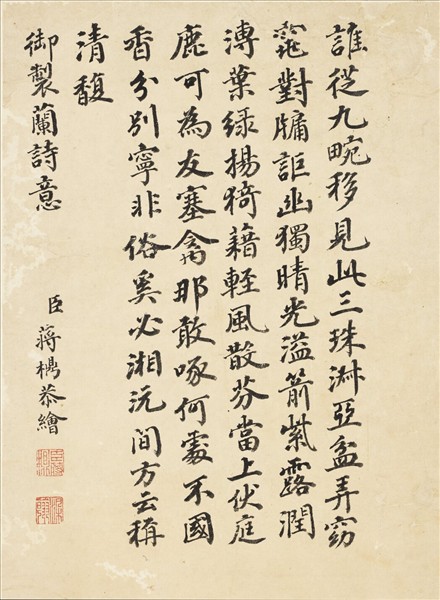 誰從九畹移見此三珠淑亞盆弄窈
窕對牖詎幽獨晴光溢箭紫露潤
溥葉綠揚猗藉輕風散芬當上伏庭
鹿可為友塞禽那敢啄何處不國
香分別寧非俗奚必湘沅間方云稱
清馥
御製蘭詩意
臣蔣恭繪